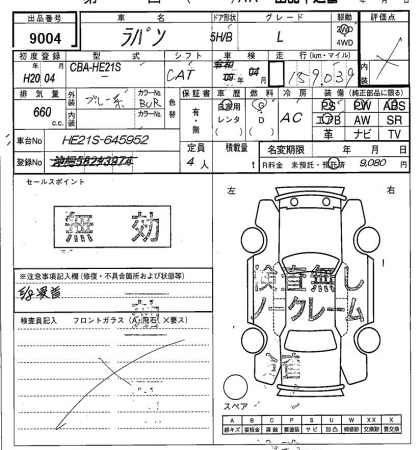 出品番号 車名 ドア形状 グレード 駆動 評価点
9004 ラパン 5H/B L 2WD 4WD
初度登録 型式 シフト 車検 走行(km・マイル) 内装
H20 04 CBA-HE21S CAT 04 159,039
排気量 外装 カラーNo. 色替 保証書 車歴 燃料 冷房 装備(純正部品に限る)
660 c.c. ブルー系 BUR 有・無 自家用 レンタ G D AC PS PW ABS
内装 カラーNo. エアB AW SR
車台No HE21S-645952 革 ナビ TV
登録No 定員 積載量 名変期限 年 月 日
4人 t R料金 未預託・預託済 9,080 円
セールスポイント 左 右
無効
検査無し
ノークレーム
※注意事項記入欄(修復・不具合箇所および状態等)
検査員記入 フロントガラス(A・飛石 ×要ス)
スペア
A B C P S U W XX X
線キズ 要板金 腐食 要塗装 サビ 凹凸 補修跡 交換済 要交換